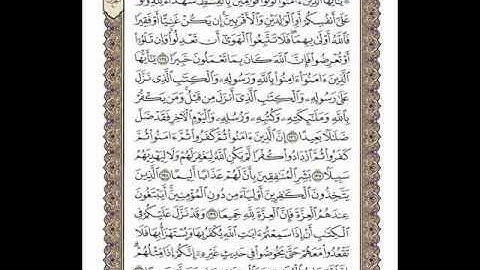 يَٰٓأَيُّهَا ٱلَّذِينَ ءَامَنُوا۟ كُونُوا۟ قَوَّٰمِينَ بِٱلْقِسْطِ شُهَدَآءَ لِلَّهِ وَلَوْ
عَلَىٰٓ أَنفُسِكُمْ أَوِ ٱلْوَٰلِدَيْنِ وَٱلْأَقْرَبِينَ إِن يَكُنْ غَنِيًّا أَوْ فَقِيرًا
فَٱللَّهُ أَوْلَىٰ بِهِمَا فَلَا تَتَّبِعُوا۟ ٱلْهَوَىٰٓ أَن تَعْدِلُوا۟ وَإِن تَلْوُۥٓا۟
أَوْ تُعْرِضُوا۟ فَإِنَّ ٱللَّهَ كَانَ بِمَا تَعْمَلُونَ خَبِيرًا ١٣٥ يَٰٓأَيُّهَا
ٱلَّذِينَ ءَامَنُوٓا۟ ءَامِنُوا۟ بِٱللَّهِ وَرَسُولِهِۦ وَٱلْكِتَٰبِ ٱلَّذِى نَزَّلَ
عَلَىٰ رَسُولِهِۦ وَٱلْكِتَٰبِ ٱلَّذِىٓ أَنزَلَ مِن قَبْلُ وَمَن يَكْفُرْ
بِٱللَّهِ وَمَلَٰٓئِكَتِهِۦ وَكُتُبِهِۦ وَرُسُلِهِۦ وَٱلْيَوْمِ ٱلْءَاخِرِ فَقَدْ ضَلَّ
ضَلَٰلًۢا بَعِيدًا ١٣٦ إِنَّ ٱلَّذِينَ ءَامَنُوا۟ ثُمَّ كَفَرُوا۟ ثُمَّ ءَامَنُوا۟ ثُمَّ
كَفَرُوا۟ ثُمَّ ٱزْدَادُوا۟ كُفْرًا لَّمْ يَكُنِ ٱللَّهُ لِيَغْفِرَ لَهُمْ وَلَا لِيَهْدِيَهُمْ
سَبِيلًۢا ١٣٧ بَشِّرِ ٱلْمُنَٰفِقِينَ بِأَنَّ لَهُمْ عَذَابًا أَلِيمًا ١٣٨ ٱلَّذِينَ
يَتَّخِذُونَ ٱلْكَٰفِرِينَ أَوْلِيَآءَ مِن دُونِ ٱلْمُؤْمِنِينَ أَيَبْتَغُونَ
عِندَهُمُ ٱلْعِزَّةَ فَإِنَّ ٱلْعِزَّةَ لِلَّهِ جَمِيعًا ١٣٩ وَقَدْ نَزَّلَ عَلَيْكُمْ فِى
ٱلْكِتَٰبِ أَنْ إِذَا سَمِعْتُمْ ءَايَٰتِ ٱللَّهِ يُكْفَرُ بِهَا وَيُسْتَهْزَأُ بِهَا فَلَا
تَقْعُدُوا۟ مَعَهُمْ حَتَّىٰ يَخُوضُوا۟ فِى حَدِيثٍ غَيْرِهِۦٓ إِنَّكُمْ إِذًا مِّثْلُهُمْ